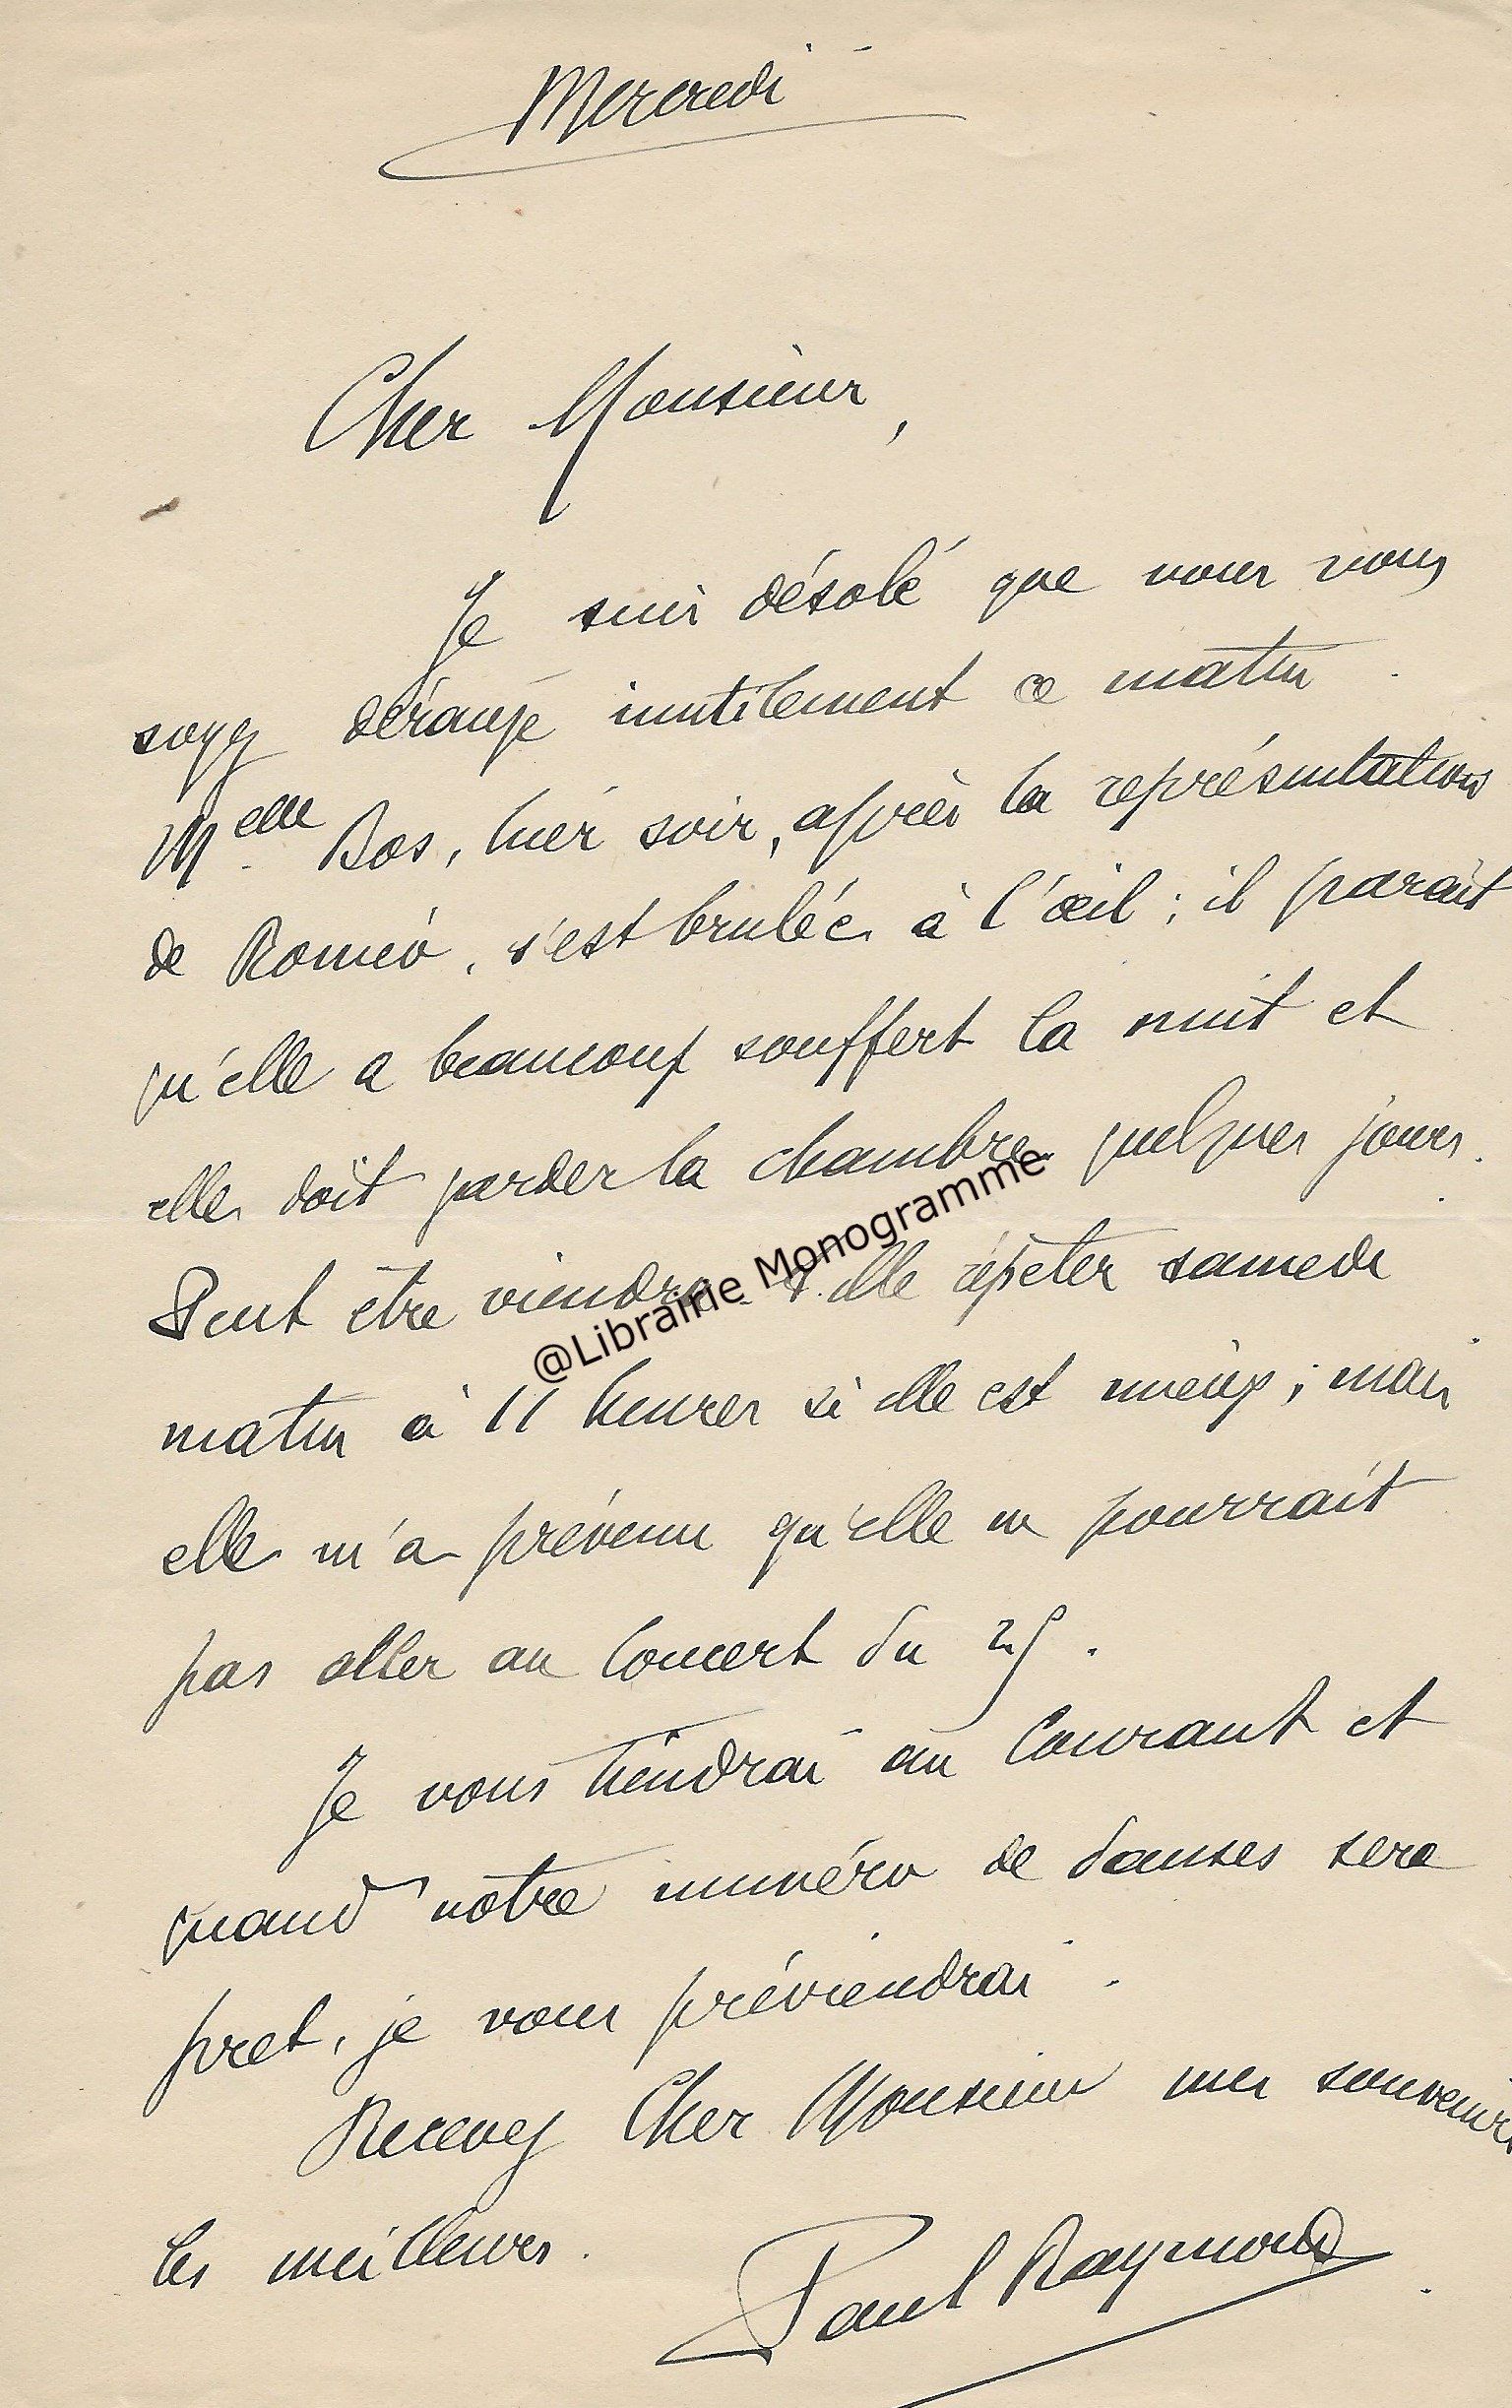 Mercredi
Cher Monsieur,
Je suis désolé que vous vous
soyez dérangé inutilement ce matin.
Melle Bos, hier soir, après la représentation
de Roméo, s'est brulée à l'œil ; il parait
qu'elle a beaucoup souffert la nuit et
elle doit garder la chambre quelques jours.
Peut être viendra-t-elle répéter samedi
@Librairie Monogramme
matin à 11 heures si elle est mieux ; mais
elle m'a prévenu qu'elle ne pourrait
pas aller au Concert du 25.
Je vous tiendrai au Courant et
quand notre numéro de danses sera
pret, je vous préviendrai.
Recevez Cher Monsieur mes souvenirs
les meilleurs.
Paul Raymond